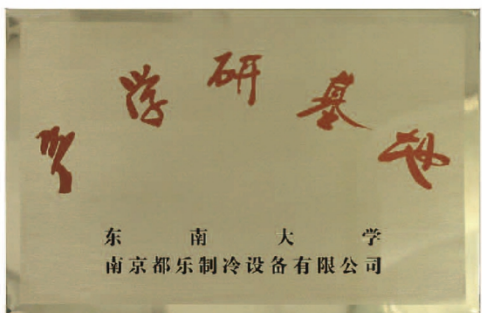 产学研基地
东南大学
南京都乐制冷设备有限公司